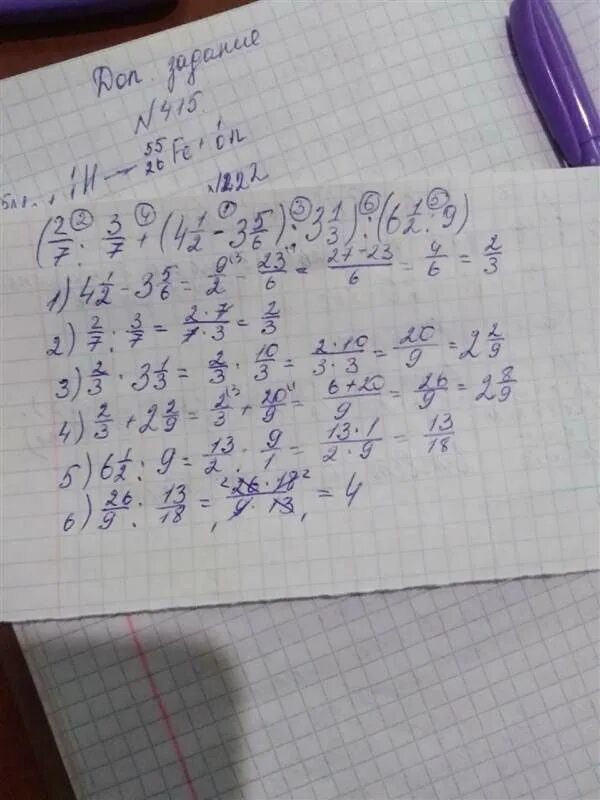 Доп. задание
№415.
¹H → ⁵⁵₂₆Fe + ¹₀n
№1222
(2/7 : 3/7 + (4 1/2 - 3 5/6) · 3 1/3) : (6 1/2 : 9)
1) 4 1/2 - 3 5/6 = 9/2 - 23/6 = (27-23)/6 = 4/6 = 2/3
2) 2/7 : 3/7 = (2·7)/(7·3) = 2/3
3) 2/3 · 3 1/3 = 2/3 · 10/3 = (2·10)/(3·3) = 20/9 = 2 2/9
4) 2/3 + 2 2/9 = 2/3 + 20/9 = (6+20)/9 = 26/9 = 2 8/9
5) 6 1/2 : 9 = 13/2 : 9/1 = (13·1)/(2·9) = 13/18
6) 26/9 : 13/18 = (26·18)/(9·13) = 4